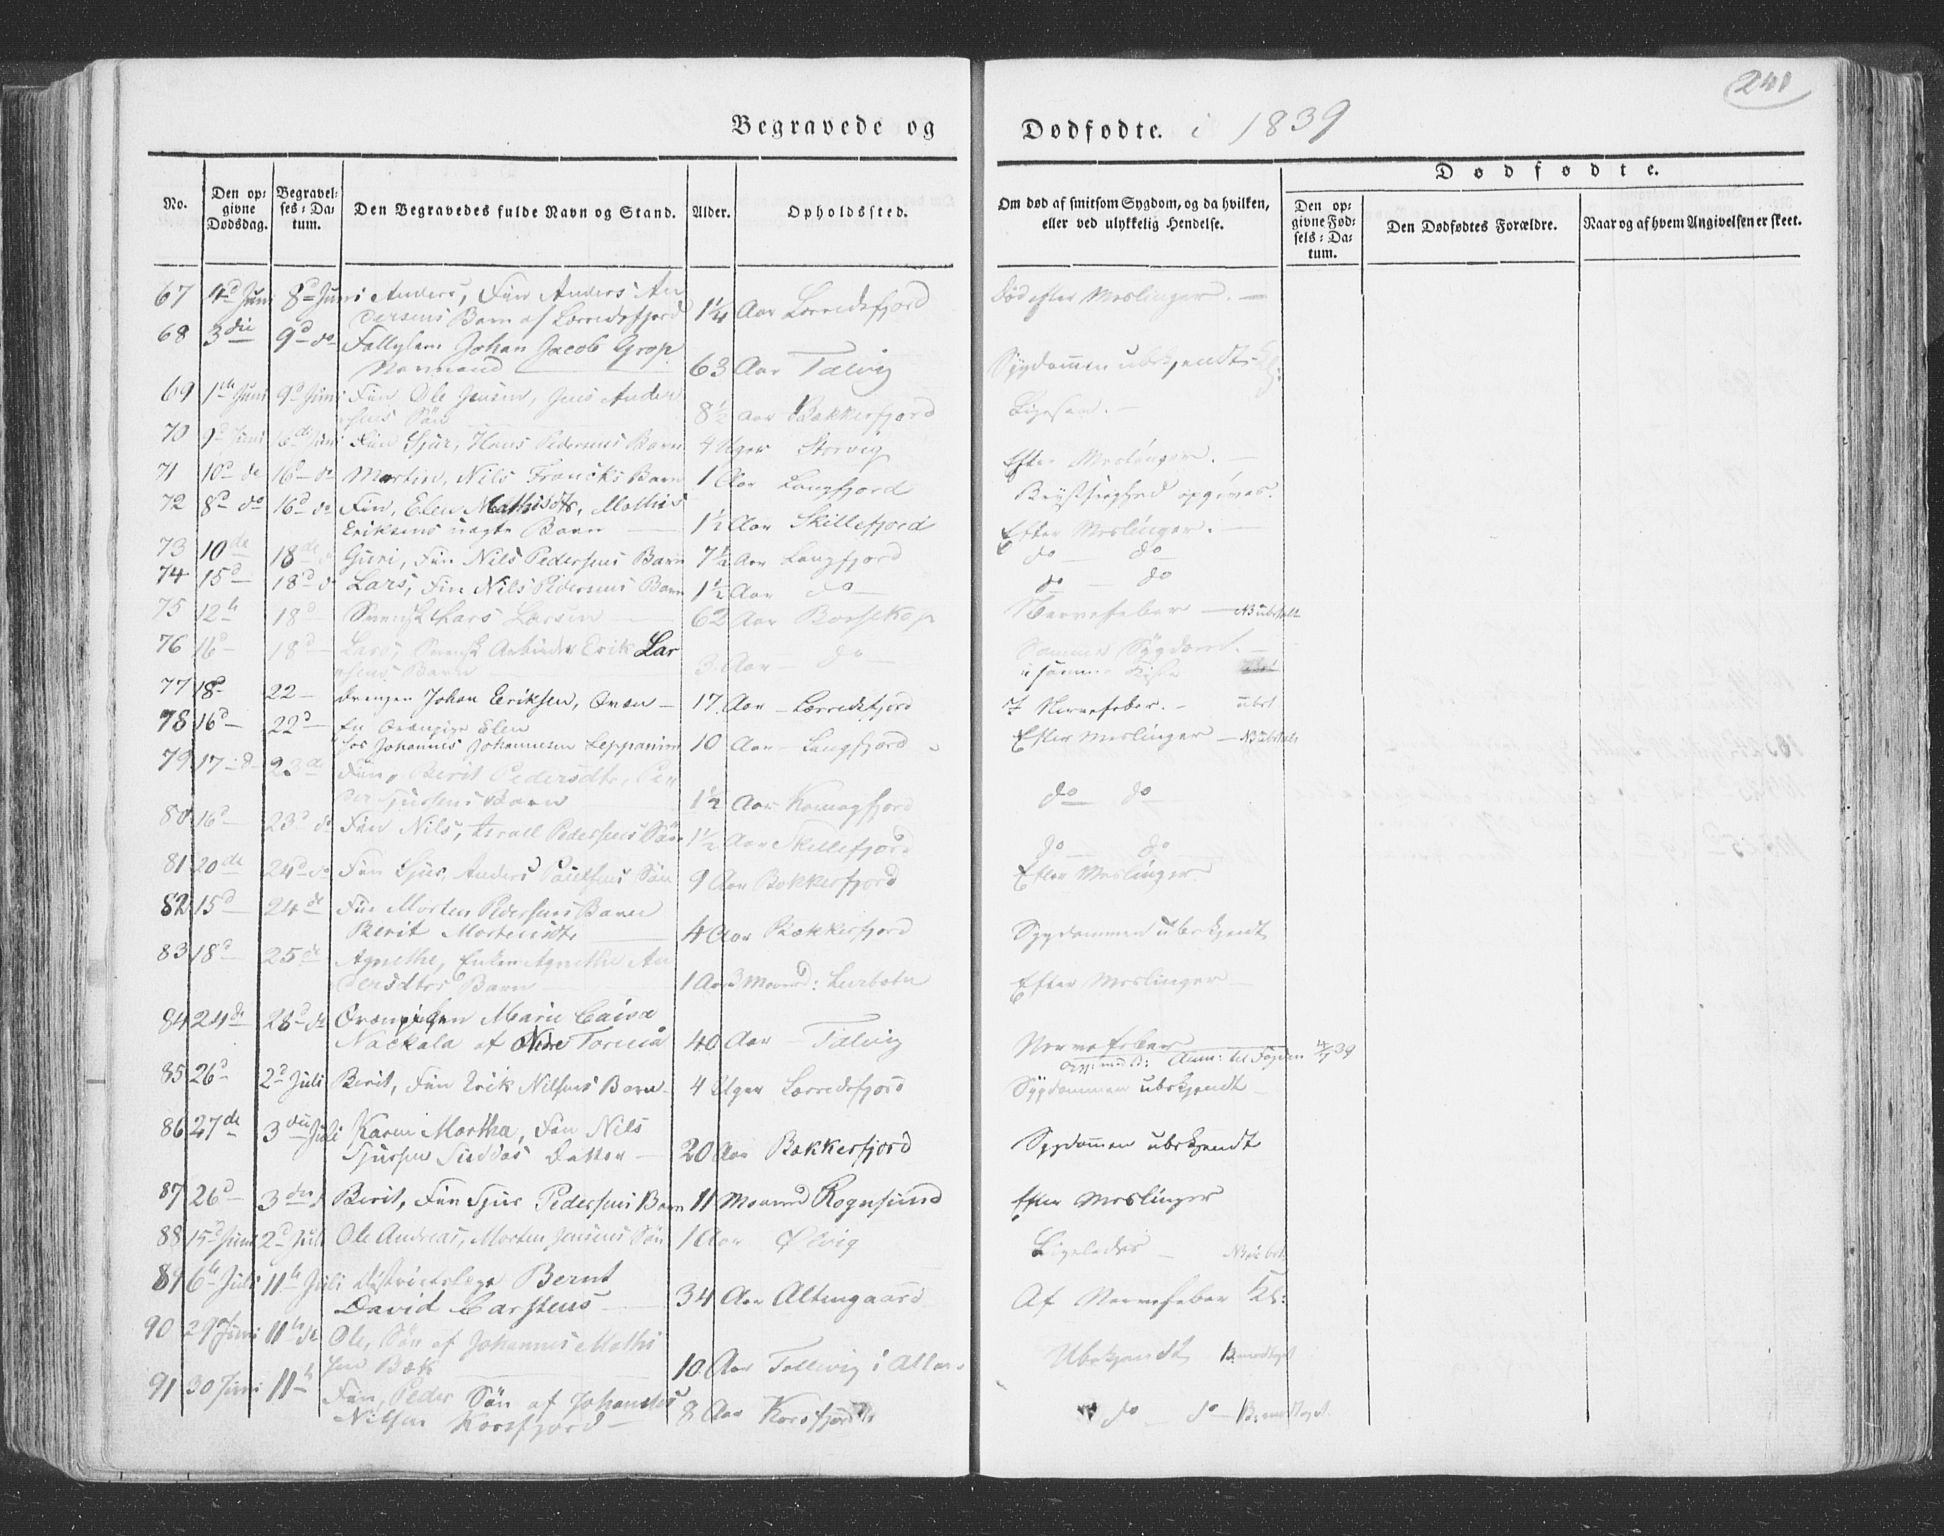 241
Begravede og Dødfødte. i 1839
No.
Den opgivne Dødsdag.
Begravelses-Datum.
Den Begravedes fulde Navn og Stand.
Alder.
Opholdssted.
Om død af smitsom Sygdom, og da hvilken, eller ved ulykkelig Hendelse.
Dødfødte.
Den opgivne Fødsels-Datum.
Den Dødfødtes Forældre.
Naar og af hvem Angivelsen er skeet.
67 4d Juni 8d Juni Anders, Fin Anders An
dersens Barn af Lerredsfjord 1 1/4 Aar Lerredsfjord Død efter Meslinger. —
68 3die 9d do Fattiglem Johan Jacob Grop
Normand 63 Aar Talvig Sygdommen ubekjendt
69 1ste Juni 9d Juni Fin Ole Jensen, Jens Ander
sens Søn 8 1/2 Aar Bekkerfjord Ligesaa. —
70 Juni 16de Juni Fin Sjur, Hans Pedersens Barn 4 Uger Storvig Efter Meslinger. —
71 10d de 16d do Martin, Nils Francks Barn 1 Aar Langfjord Brystsyghed opgives.
72 8d do 16d do Fin, Elen Mathisdtr, Mathis
Eriksens uægte Barn 1 1/2 Aar Skillefjord Efter Meslinger. —
73 10de 18de Guri, Fin Nils Pedersens Barn 7 1/2 Aar Langfjord do do
74 15d 18d d Lars, Fin Nils Pedersens Barn 1 1/2 Aar do do — do
75 12te 18d Svensk Lars Larsen 62 Aar Bossekop Nervefeber —
76 16d 18d Lars, Svensk Arbeider Erik Lar
sens Barn 3 Aar — do — Samme Sygdom. —
i samme Kiste
77 18d 22 — Drengen Johan Eriksen, Qvæn — 17 Aar — Lerredsfjord Nervefeber. — ubet
78 16d 22d — En Qvænpige Elen
hos Johannes Johannesen Leppanim 10 Aar — Langfjord Efter Meslinger —
79 17 d 23d Fin, Berit Pedersdtr, Pe
der Sjursens Barn 1 1/2 Aar Komagfjord do do
80 16d 23d do Fin Nils, Israel Pedersens Søn 1 1/2 Aar Skillefjord do do
81 20de 24d do Fin Sjur, Anders Poulsens Søn 9 Aar Bekkerfjord Efter Meslinger
82 15d 24de Fin Morten Pedersens Barn
Berit Mortensdtr 4 Aar Bekkerfjord Sygdommen ubekjendt
83 18d 25de Agnethe, Enken Agnethe An
dersdtrs Barn 1 Aar 3 Maaned: Lerbotn Efter Meslinger —
84 24de 28d do Qvænpigen Marie Caisa
Nackala af Nedre Torneå 40 Aar — Talvig Nervefeber
Anm: til Fogden 4/7 39
85 26d 2d Juli Berit, Fin Erik Nilsens Barn 4 Uger Lerredsfjord Sygdommen ubekjendt —
86 27de 3die Juli Karen Martha, Fin Nils
Sjursen Suddas Datter 20 Aar Bekkerfjord Sygdommen ubekjendt
87 26d 3die Berit, Fin Sjur Pedersens Barn 11 Maaned Rognsund Efter Meslinger
88 15d Juni 2d Juli Ole Andreas, Morten Jensens Søn 1 Aar Ølvig Ligeledes —
89 6te Juli 11te Juli Districtslæge Bernt
David Carstens 34 Aar Altengaard Af Nervefeber
90 29d Juni 11te do Ole, Søn af Johannes Mathi
sen Bæk 10 Aar Tallevig i Alten Ubekjendt
91 30 Juni 11te Fin, Peder Søn af Johannes
Nilsen Korsfjord — 8 Aar Korsfjord do — do —